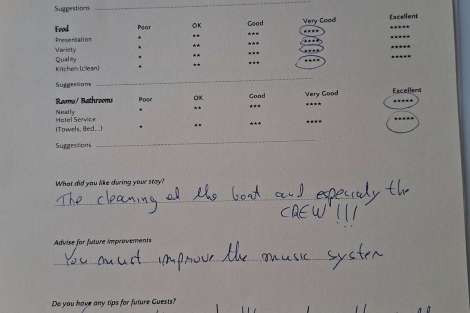 Suggestions
Food Poor OK Good Very Good Excellent
Presentation * ** *** **** *****
Variety * ** *** **** *****
Quality * ** *** **** *****
Kitchen (clean) * ** *** **** *****
Suggestions
Rooms/ Bathrooms Poor OK Good Very Good Excellent
Neatly * ** *** **** *****
Hotel Service
(Towels, Bed...) * ** *** **** *****
Suggestions
What did you like during your stay?
The cleaning of the boat and especialy the
CREW!!!
Advise for future improvements
You must improve the music system
Do you have any tips for future Guests?